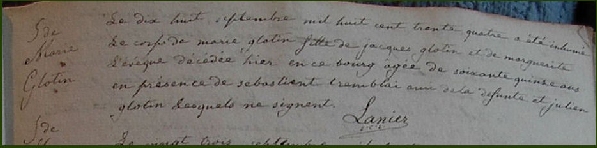 S de
Marie
Glotin
Le dix huit septembre mil huit cent trente quatre a été inhumé
Le corps de marie glotin fille de jacques glotin et de marguerite
L'eveque décédée hier en ce bourg agée de soixante quinze ans
en présence de sebastient tremblai ami de la defunte et julien
glotin Lesquels ne signent.
Lanier
S de
Le vingt trois septembre